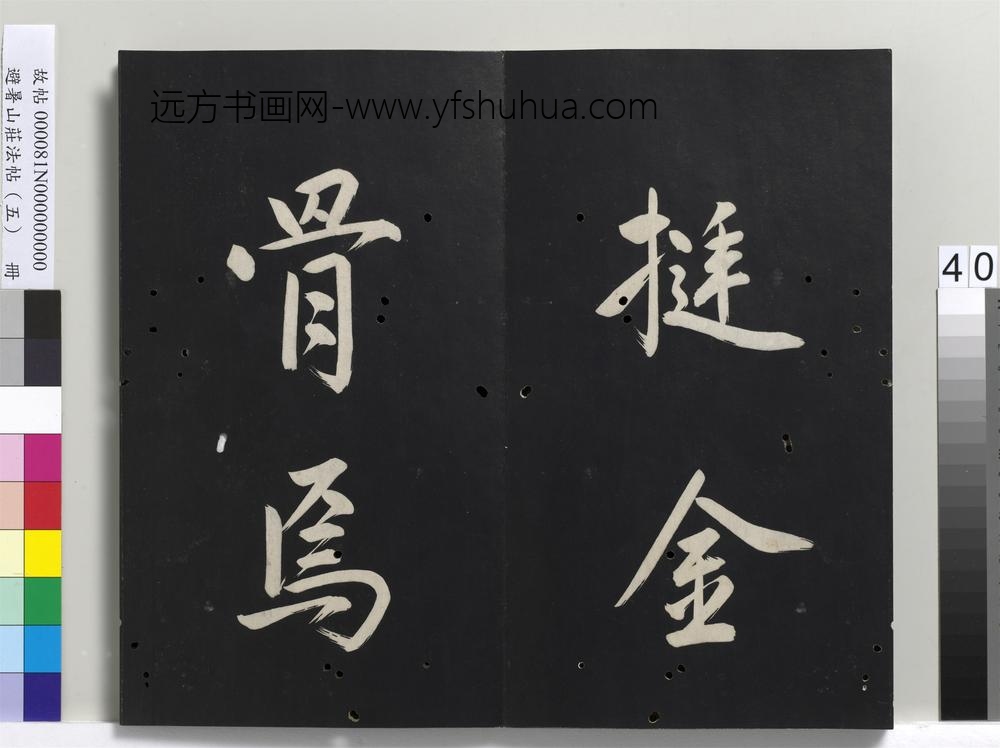 远方书画网-www.yfshuhua.com
故帖 000081N000000000
避暑山莊法帖（五） 冊
40
挺金
骨焉